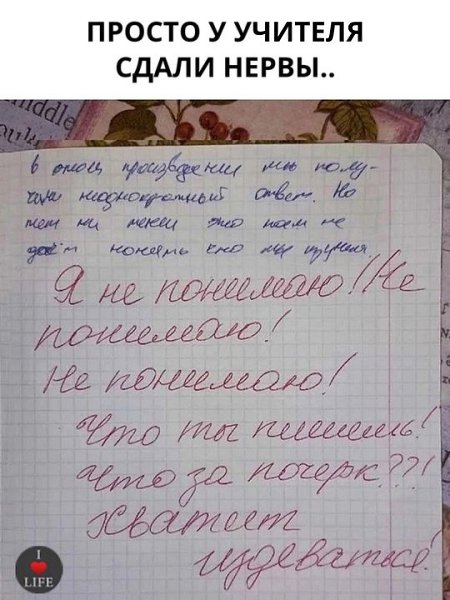 ПРОСТО У УЧИТЕЛЯ
СДАЛИ НЕРВЫ..
iddle
в этом произведении мы полу-
чили неоднократный ответ. Но
тем ни менее это нам не
даёт понять кто мы
Я не понимаю! Не
понимаю!
Не понимаю!
Что ты пишешь!
Что за почерк??!
Хватит
издеваться!
I
LIFE